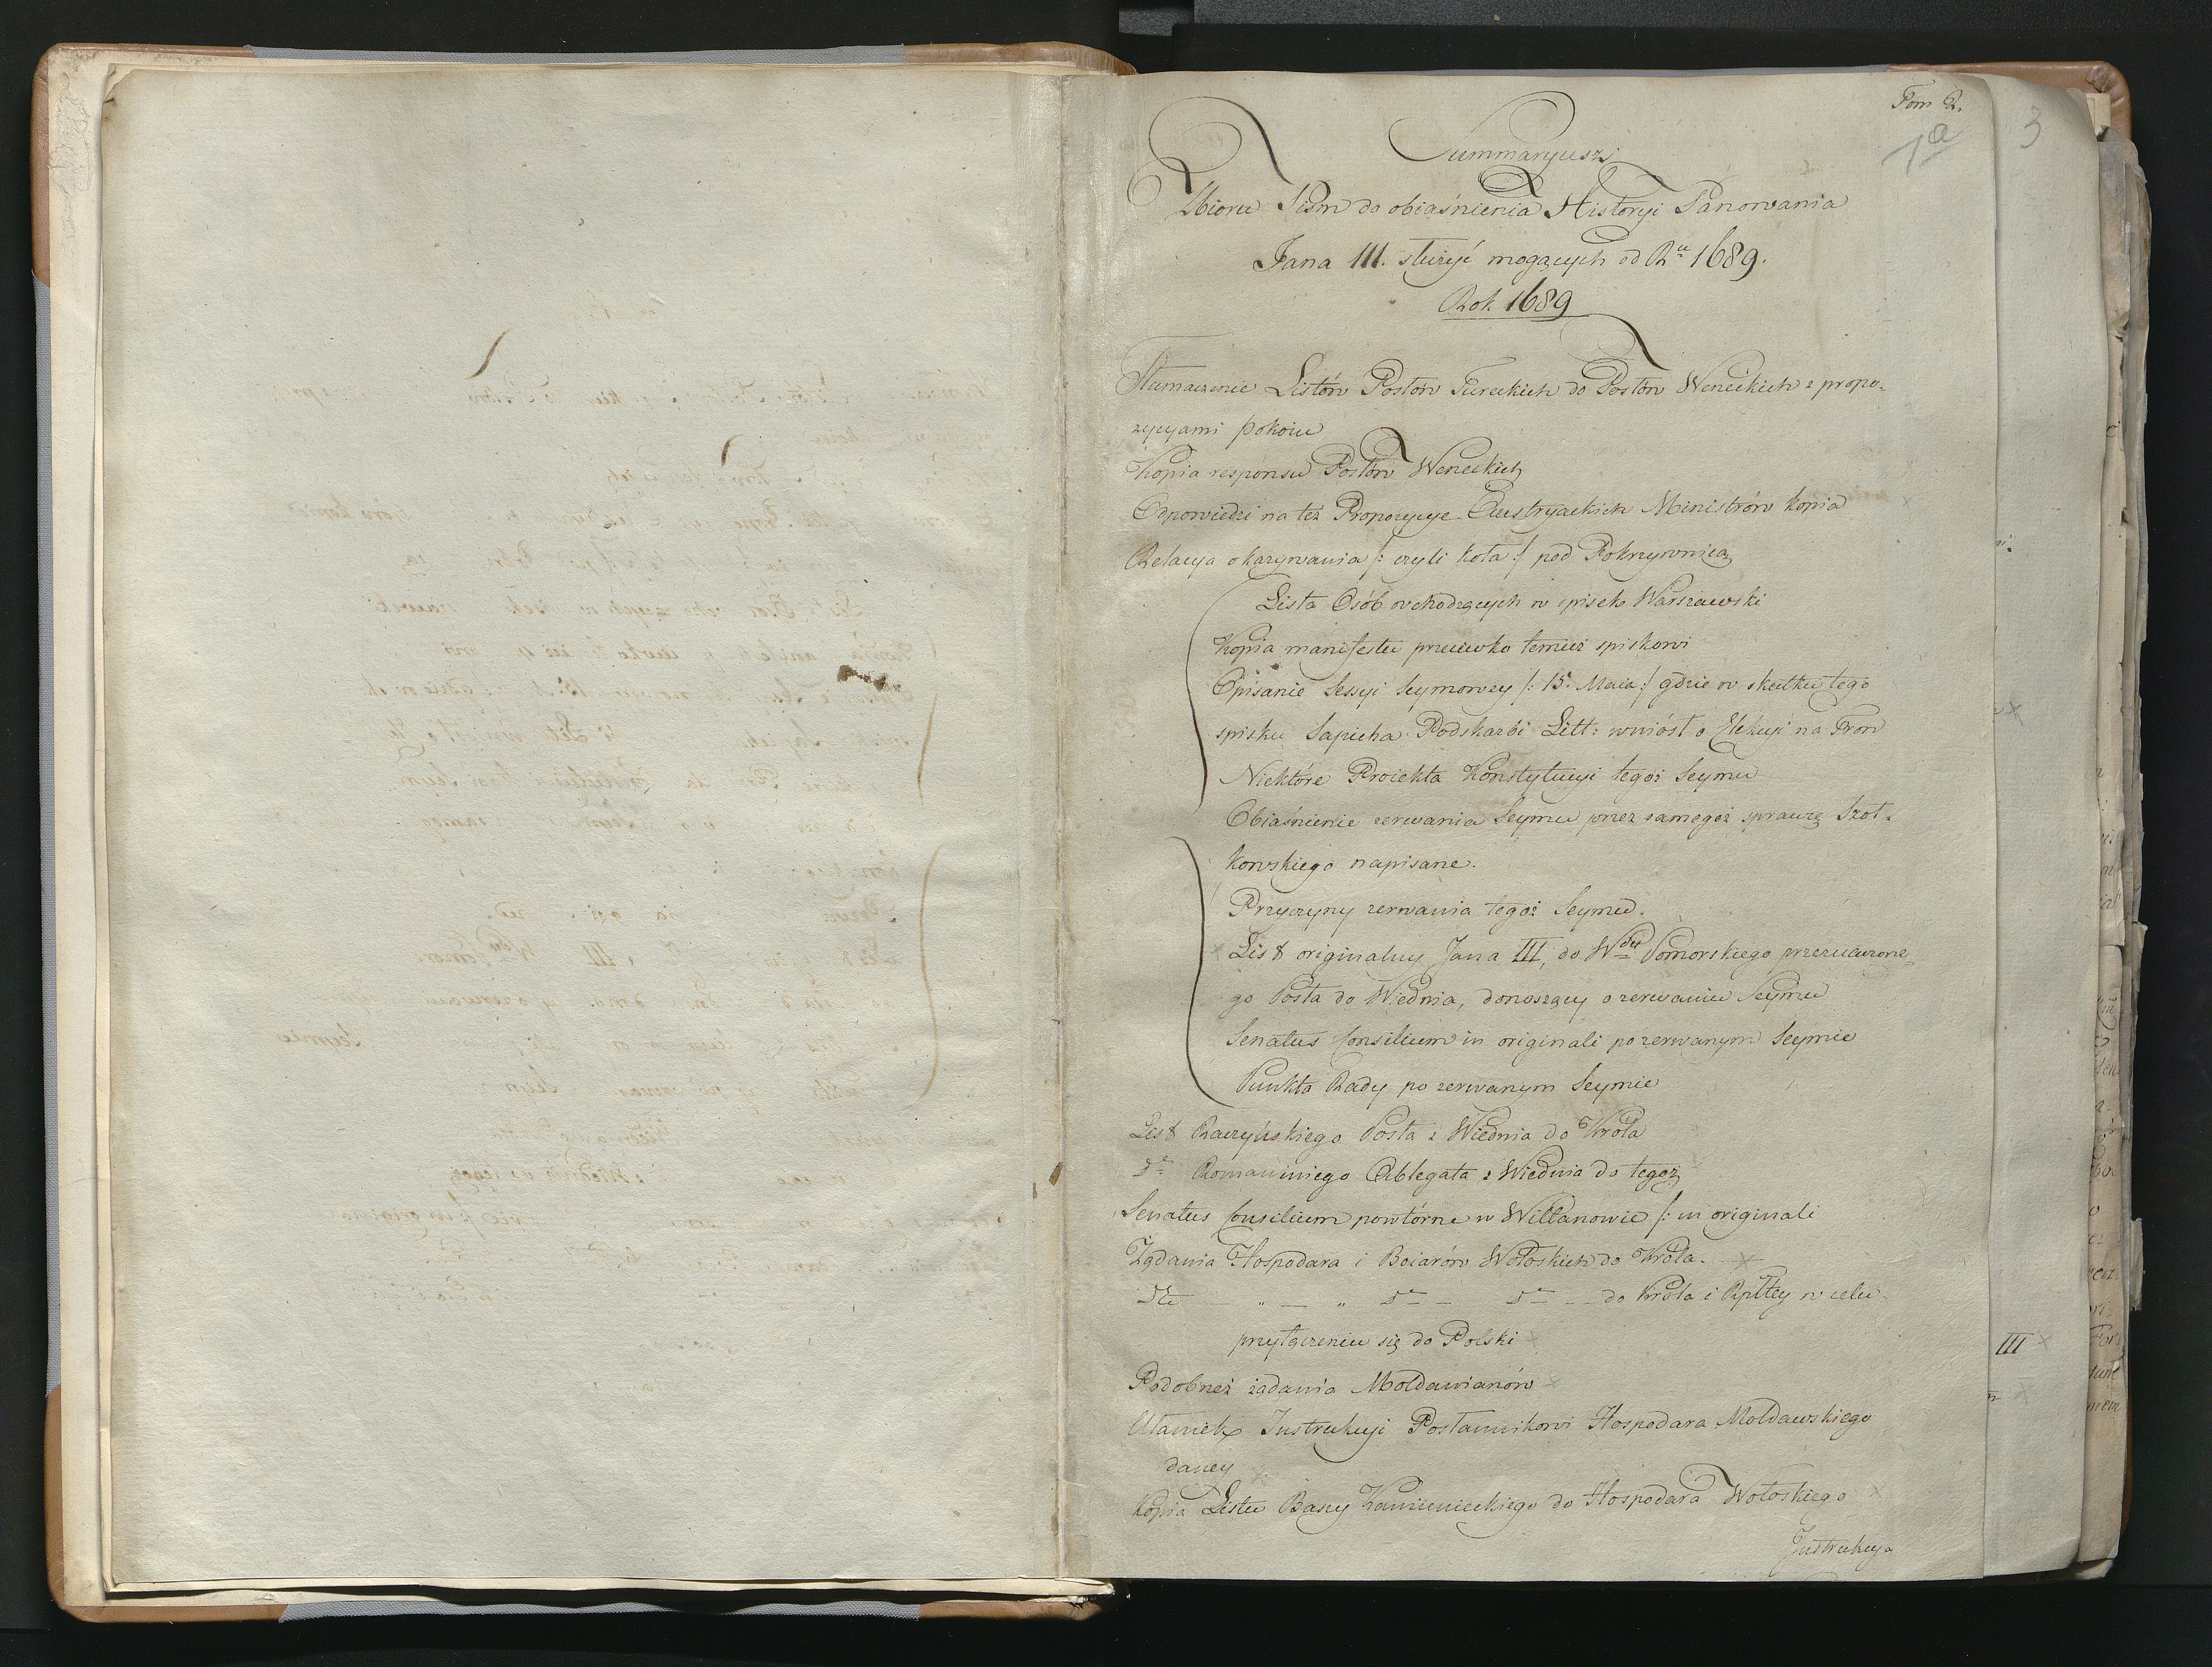 Tom 2.
1a
3
Summaryusz
Zbioru Pism do obiaśnienia Historyi Panowania
Jana III. służyć mogących od Ru 1689.
Rok 1689
Tłumaczenie Listów Posłów Tureckich do Posłów Weneckich z propo-
zycyami pokoiu
Kopia responsu Posłów Weneckich
Odpowiedzi na też Propozycye Austryackich Ministrów kopia
Relacya okazywania /: czyli koła :/ pod Pokrzywnicą
Lista Osób wchodzących w spisek Warszawski
Kopia manifestu przeciwko temuż spiskowi
Opisanie Sessyi Seymowey /: 15. Maia :/ gdzie w skutku tego
spisku Sapieha Podskarbi Litt: wniósł o Elekcyi na Tron
Niektóre Proiekta Konstytucyi tegoż Seymu
Obiaśnienie zerwania Seymu przez samegoż sprawcę Szoł-
kowskiego napisane.
Przyczyny zerwania tegoż Seymu.
List originalny Jana III, do Wdy Pomorskiego przeznaczone-
go Posła do Wiednia, donoszący o zerwaniu Seymu
Senatus Consilium in originali po zerwanym Seymie
Punkta Rady po zerwanym Seymie
List Raczyńskiego Posła z Wiednia do Króla
do Ablegata z Wiednia do tegoż
Senatus Consilium powtórne w Willanowie /: in originali
Żądania Hospodara i Boiarów Wołoskich do Króla.
Dto — „ — „ do — do — do Króla i Rpltey w celu
przyłączeniu się do Polski
Podobneż żądania Mołdawianów
Ułamek Instrukcyi Posłannikowi Hospodara Mołdawskiego
daney
Kopia Listu Baszy Kamienieckiego do Hospodara Wołoskiego
Instrukcya
III